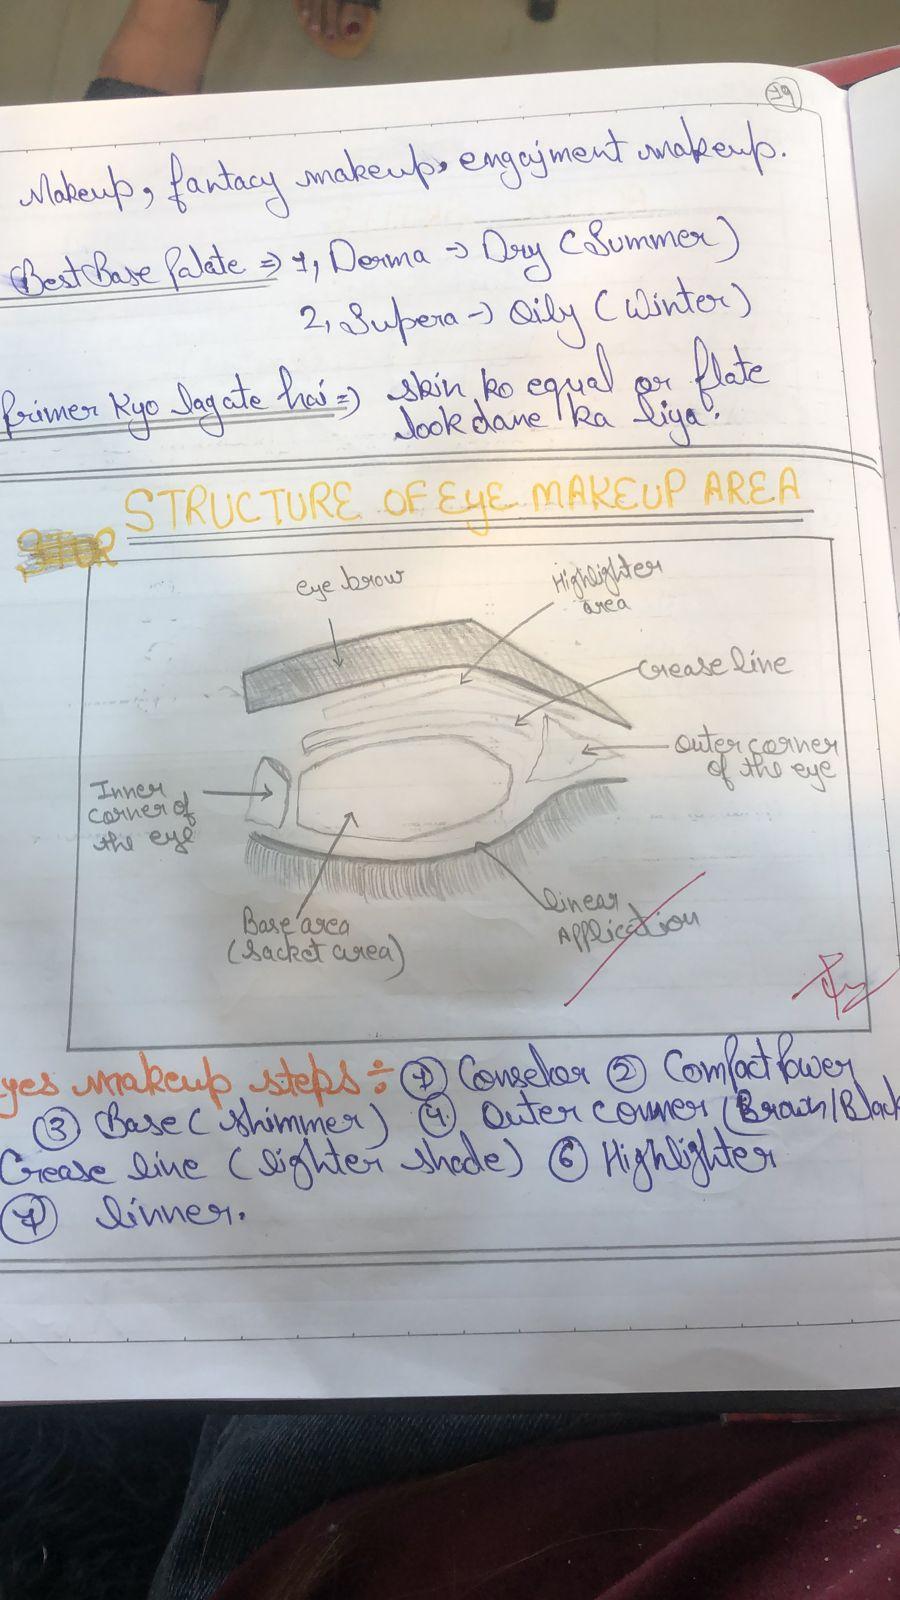 39
Makeup, fantacy makeup, engajment makeup.
Best Base Palate ⇒ 1, Derma → Dry (Summer)
2, Supera → Oily (Winter)
Primer Kyo lagate hai ⇒ skin ko equal or flate
look dane ka liya.
STRUCTURE OF EyE MAKEUP AREA
eye brow
Highlighter
area
Crease line
Outer corner
of the eye
Inner
corner of
the eye
Base area
(sacket area)
linear
Application
yes makeup steps ÷ ① Conseler ② Compact Power
③ Base (Shimmer) ④ Outer corner (Brown/Black
Crease line (lighter shade) ⑥ Highlighter
⑦ linner.